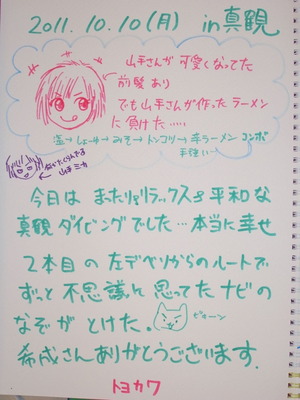 2011.10.10(月) in 真観
山手さんが可愛くなってた
前髪あり
でも山手さんが作ったラーメン
に負けた……
塩→しょーゆ→みそ→トンコツ→辛ラーメン コンボ
手強いー
山手ミカ
今日は まったりリラックス 平和な
真観ダイビングでした…本当に幸せ
2本目の左デベソからのルートで
ずっと不思議に思ってたナビの
なぞがとけた。
ピキーン
希成さんありがとうございます.
トヨカワ